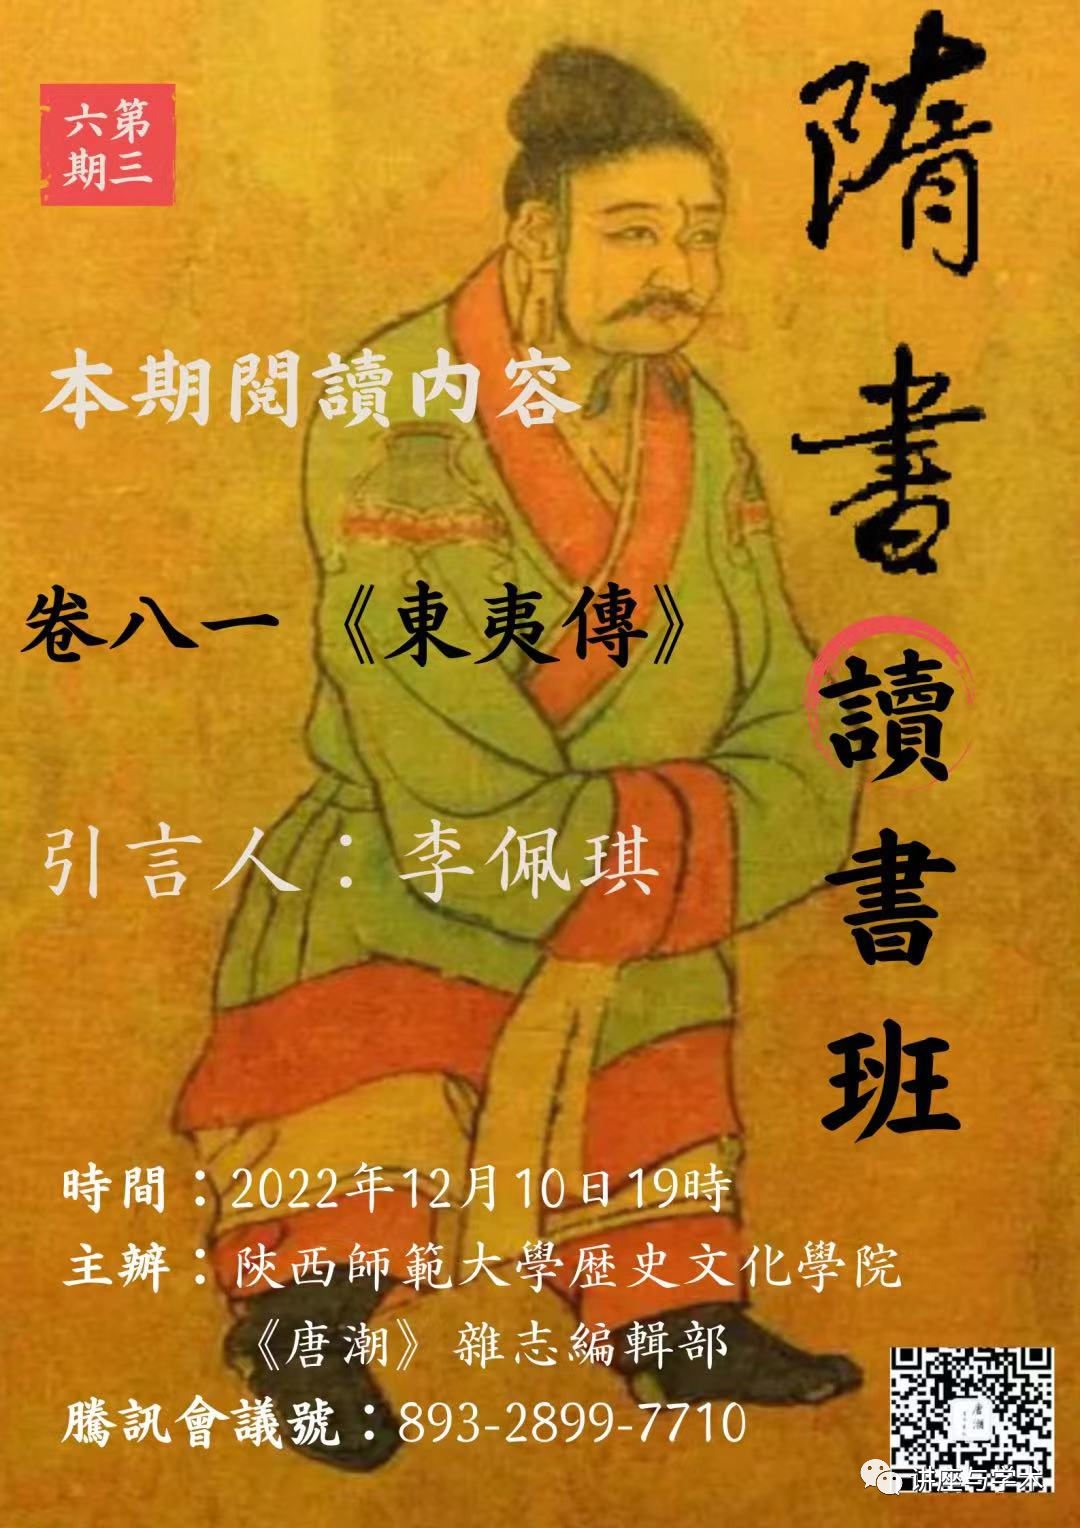 隋書讀書班
第三六期
本期閱讀内容
卷八一《東夷傳》
引言人：李佩琪
時間：2022年12月10日19時
主辦：陝西師範大學歷史文化學院
《唐潮》雜志編輯部
騰訊會議號：893-2899-7710
唐潮
讲座与学术